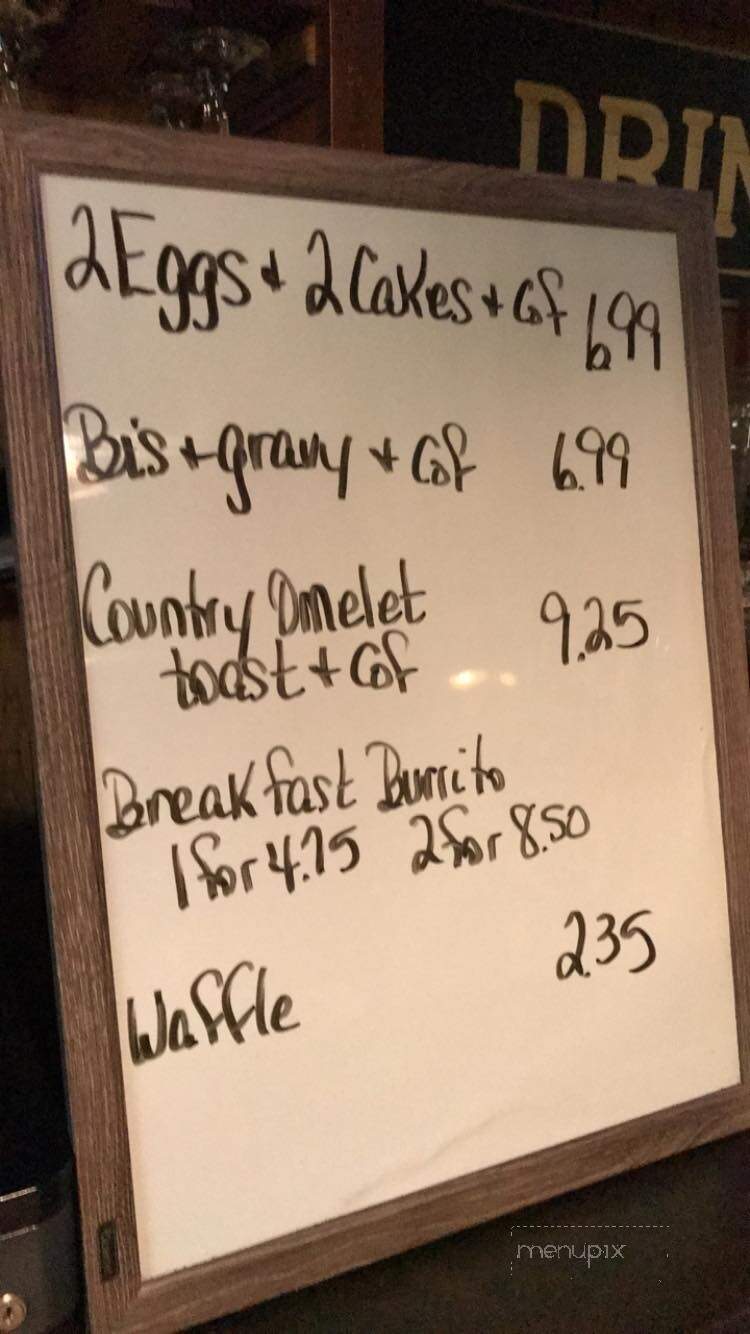 DRIN
2 Eggs + 2 Cakes + Cof 6.99
Bis + gravy + Cof 6.99
Country Omelet 9.25
toast + Cof
Breakfast Burrito
1 for 4.75 2 for 8.50
Waffle 2.35
menupix